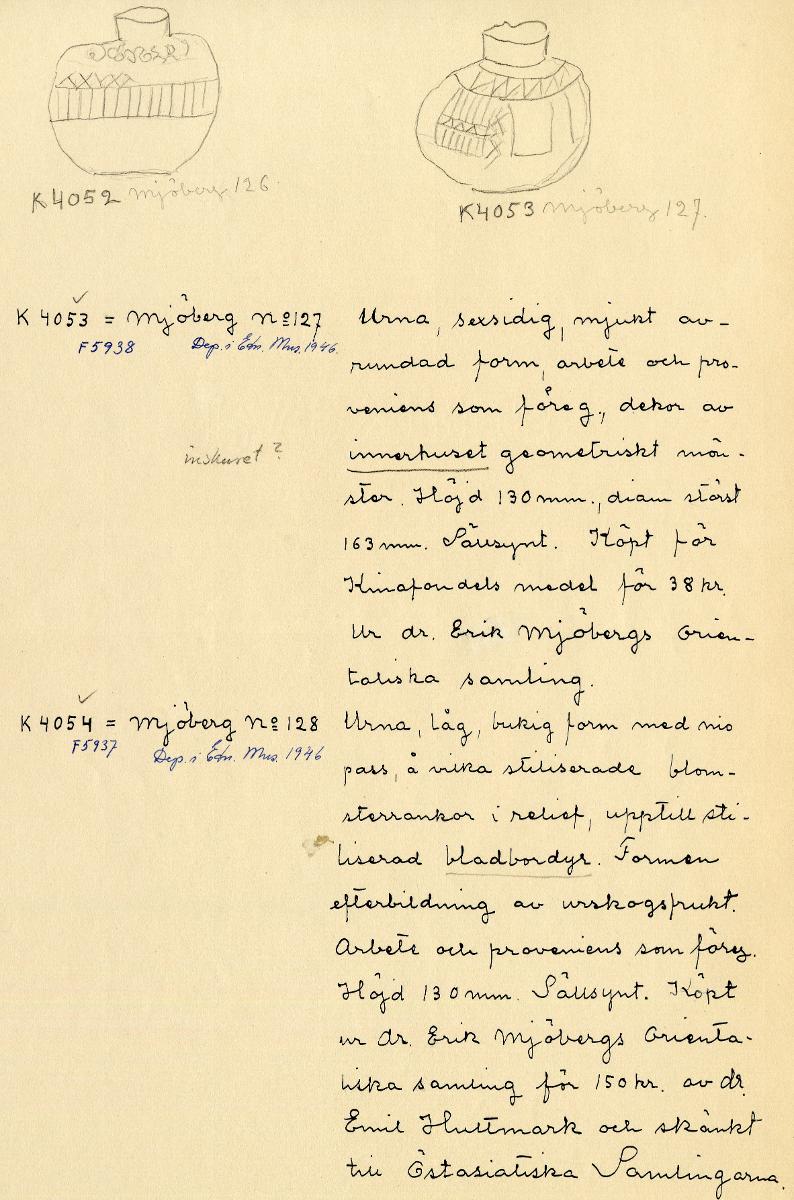 K 4052 Mjöberg 126
K 4053 Mjöberg 127.
K 4053 = Mjöberg No 127
F 5938 Dep. i Etn. Mus. 1946.
Urna, sexsidig, mjukt av-
rundad form, arbete och pro-
veniens som föreg., dekor av
inskuret ?
innerhuset geometriskt mön-
ster. Höjd 130 mm., diam störst
163 mm. Sällsynt. Köpt för
Kinafondels medel för 38 kr.
Ur dr. Erik Mjöbergs Orien-
taliska samling.
K 4054 = Mjöberg No 128
F 5937 Dep. i Etn. Mus. 1946
Urna, låg, bukig form med nio
pass, å vilka stiliserade blom-
sterrankor i relief, upptill sti-
liserad bladbordyr. Formen
efterbildning av urskogsfrukt.
Arbete och proveniens som föreg.
Höjd 130 mm. Sällsynt. Köpt
ur dr. Erik Mjöbergs Orienta-
liska samling för 150 kr. av dr.
Emil Hultmark och skänkt
till Östasiatiska Samlingarna.